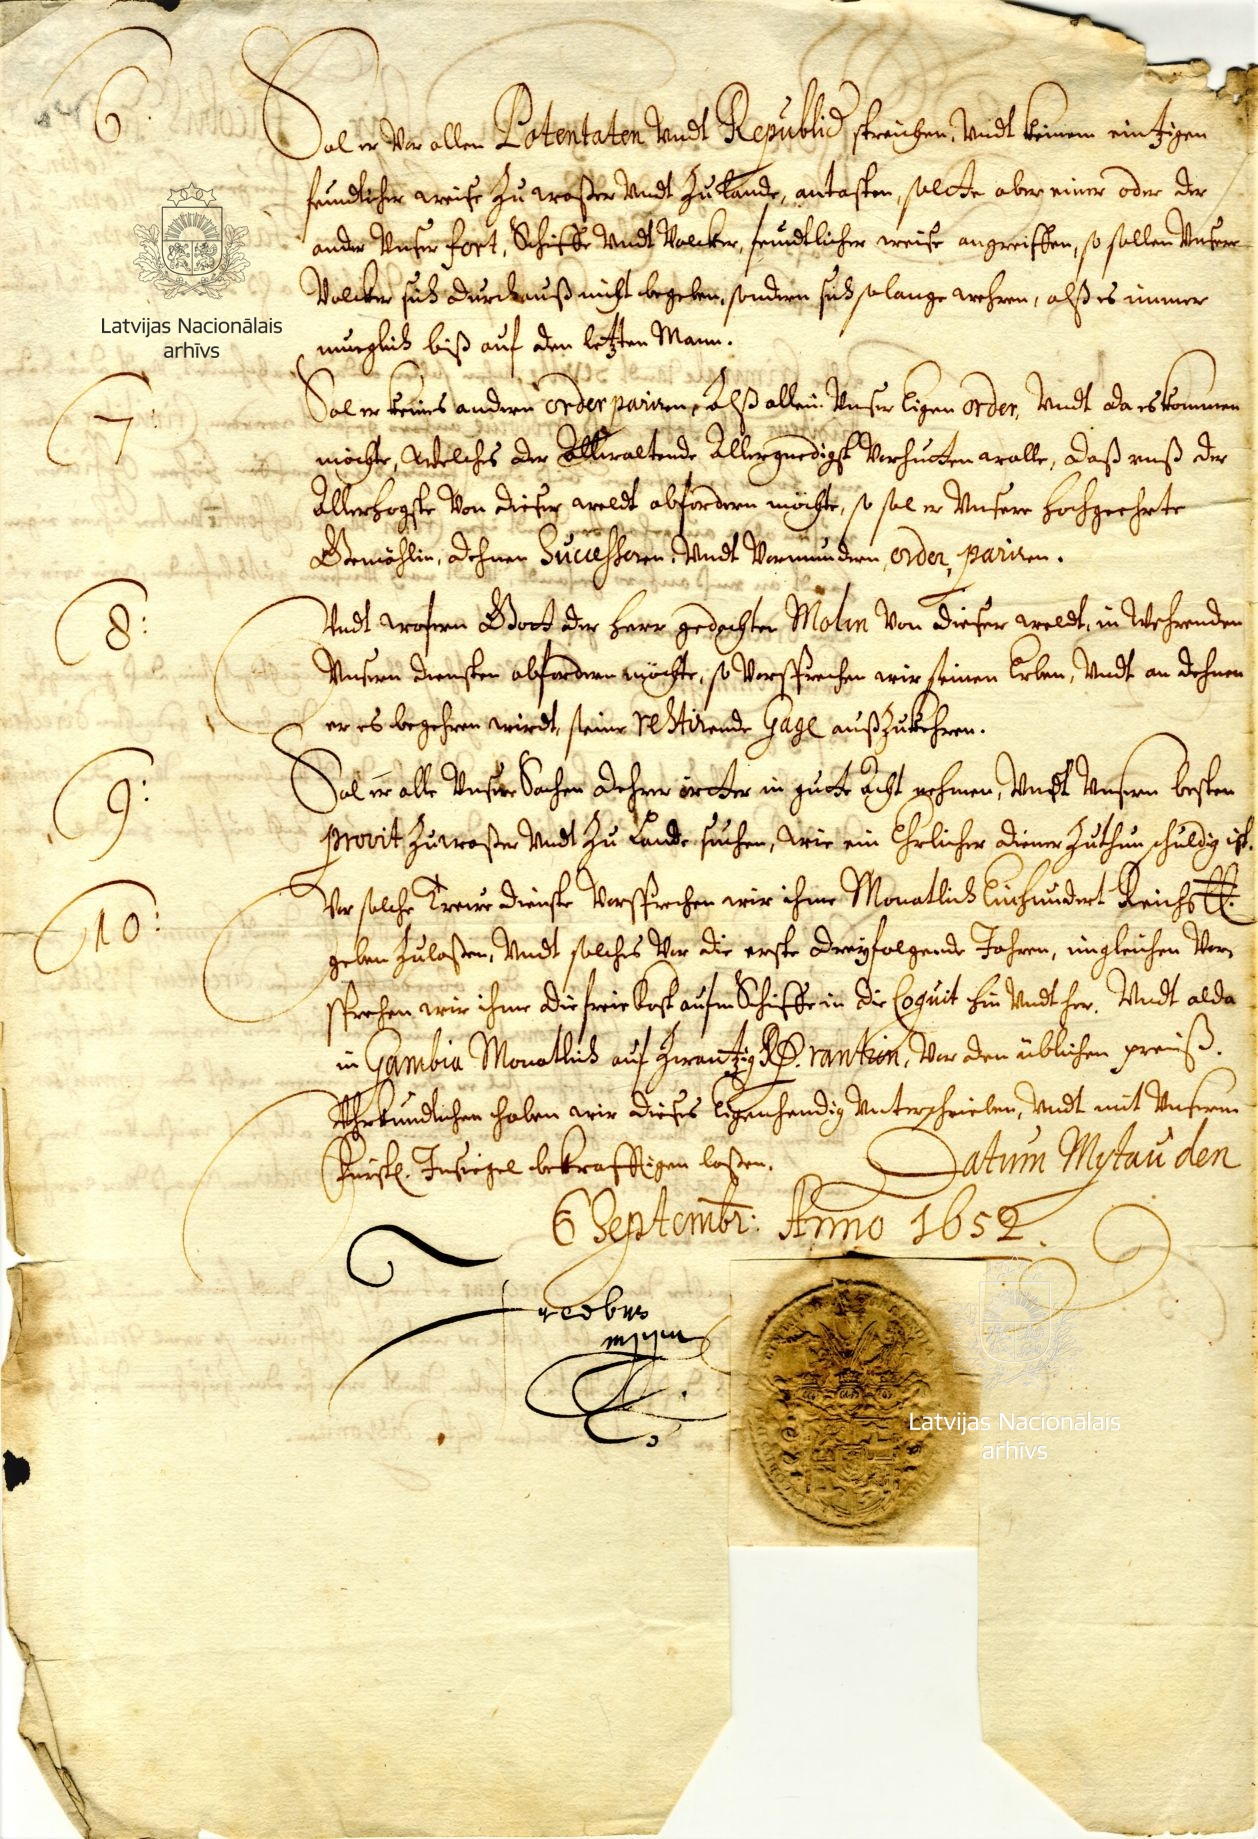 6:
Sol er Vor allen Potentaten Vndt Republiq streichen, Vndt keinem eintzigen
feindtlicher weise zu waßer Vndt zu Lande, antasten, solte aber einer oder der
ander Vnser fort, Schiffe Vndt Volcker, feindtlicher weise angreiffen, so sollen Vnsere
Volcker sich durchauß nicht begeben, sondern sich solange wehren, alß es immer
mueglich biß auf den letzten Mann.
7:
Sol er keines andern order pariren, Alß allein Vnser Eigen order, Vndt da es kommen
möchte, Welches der Allwaltende Allergnedigst Verhütten wolle, daß vnß der
Allerhogste Von dieser weldt abfordern möchte, so sol er Vnsere Hochgeehrte
Gemahlin, dehnen Successoren Vndt Vormundern, order, pariren.
8:
Vndt wofern Gott der Herr gedachten Molin Von dieser weldt, in Wehrenden
Vnsern diensten abfordern möchte, so Versprechen wir seinen Erben, Vndt an dehnen
er es begehren wirdt, seine restirende Gage außzukehren.
9:
Sol er alle Vnsere Sachen dehrer örtter in gutte Acht nehmen, Vndt Vnsern besten
provit zu waßer Vndt zu Lande suchen, wie ein Ehrlicher diener zuthun schuldig ist.
10:
Vor solche Trewe dienste Versprechen wir ihme Monatlich Einhundert Reichs
geben zulaßen, Vndt solches Vor die erste dreyfolgende Jahren, ingleichen Ver-
sprechen wir ihme die freie Kost aufm Schiffe in die Coquit hin Vndt her. Vndt alda
in Gambia Monatlich auf zwantzig Rantion, Vor den üblichen preiß.
Vhrkundtlichen haben wir dieses Eigenhendig Vnterschrieben, Vndt mit Vnserm
Fürstl. Insiegel bekrafftigen laßen. Datum Mytau den
6 Septembr: Anno 1652.
Jacobus
mppria
Latvijas Nacionālais
arhīvs
Latvijas Nacionālais
arhīvs